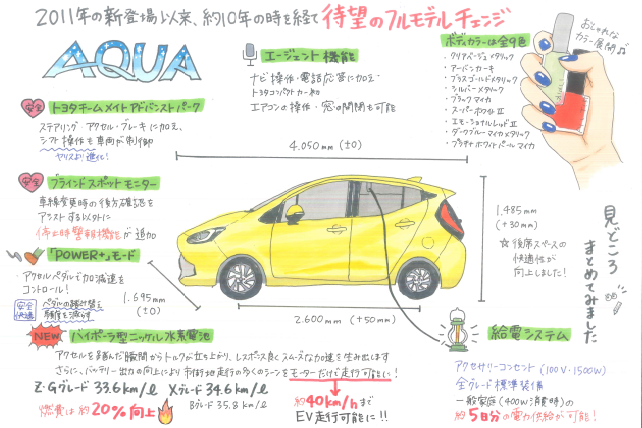 2011年の新登場以来、約10年の時を経て 待望のフルモデルチェンジ
AQUA
エージェント機能
ナビ操作・電話応答に加え、
トヨタコンパクトカー初
エアコンの操作・窓の開閉も可能
ボディカラーは全9色
・クリアベージュメタリック
・アーバンカーキ
・ブラスゴールドメタリック
・シルバーメタリック
・ブラックマイカ
・スーパーホワイトⅡ
・エモーショナルレッドⅡ
・ダークブルーマイカメタリック
・プラチナホワイトパールマイカ
おしゃれな
カラー展開♪
安全 トヨタチームメイト アドバンストパーク
ステアリング・アクセル・ブレーキに加え、
シフト操作も車両が制御
ヤリスより進化!
4.050mm (±0)
安全 ブラインドスポットモニター
車線変更時の後方確認を
アシストする以外に
停止時警報機能が追加
「POWER+」モード
・アクセルペダルで加減速を
コントロール!
安全 快適
ペダルの踏み替え
頻度を減らす
1.695mm
(±0)
1.485mm
(+30mm)
☆ 後席スペースの
快適性が
向上しました!
見どころ
まとめてみました
2.600mm (+50mm)
NEW バイポーラ型ニッケル水素電池
アクセルを踏んだ瞬間からトルクが立ち上がり、レスポンス良くスムーズな加速を生み出します
さらに、バッテリー出力の向上により市街地走行の多くのシーンをモーターだけで走行可能に!
Z・Gグレード 33.6km/ℓ Xグレード 34.6km/ℓ
燃費は約20%向上
Bグレード 35.8km/ℓ
約40km/hまで
EV走行可能に!!
給電システム
アクセサリーコンセント(100V・1500W)
全グレード標準装備
一般家庭(400W消費時)の
約5日分の電力供給が可能!